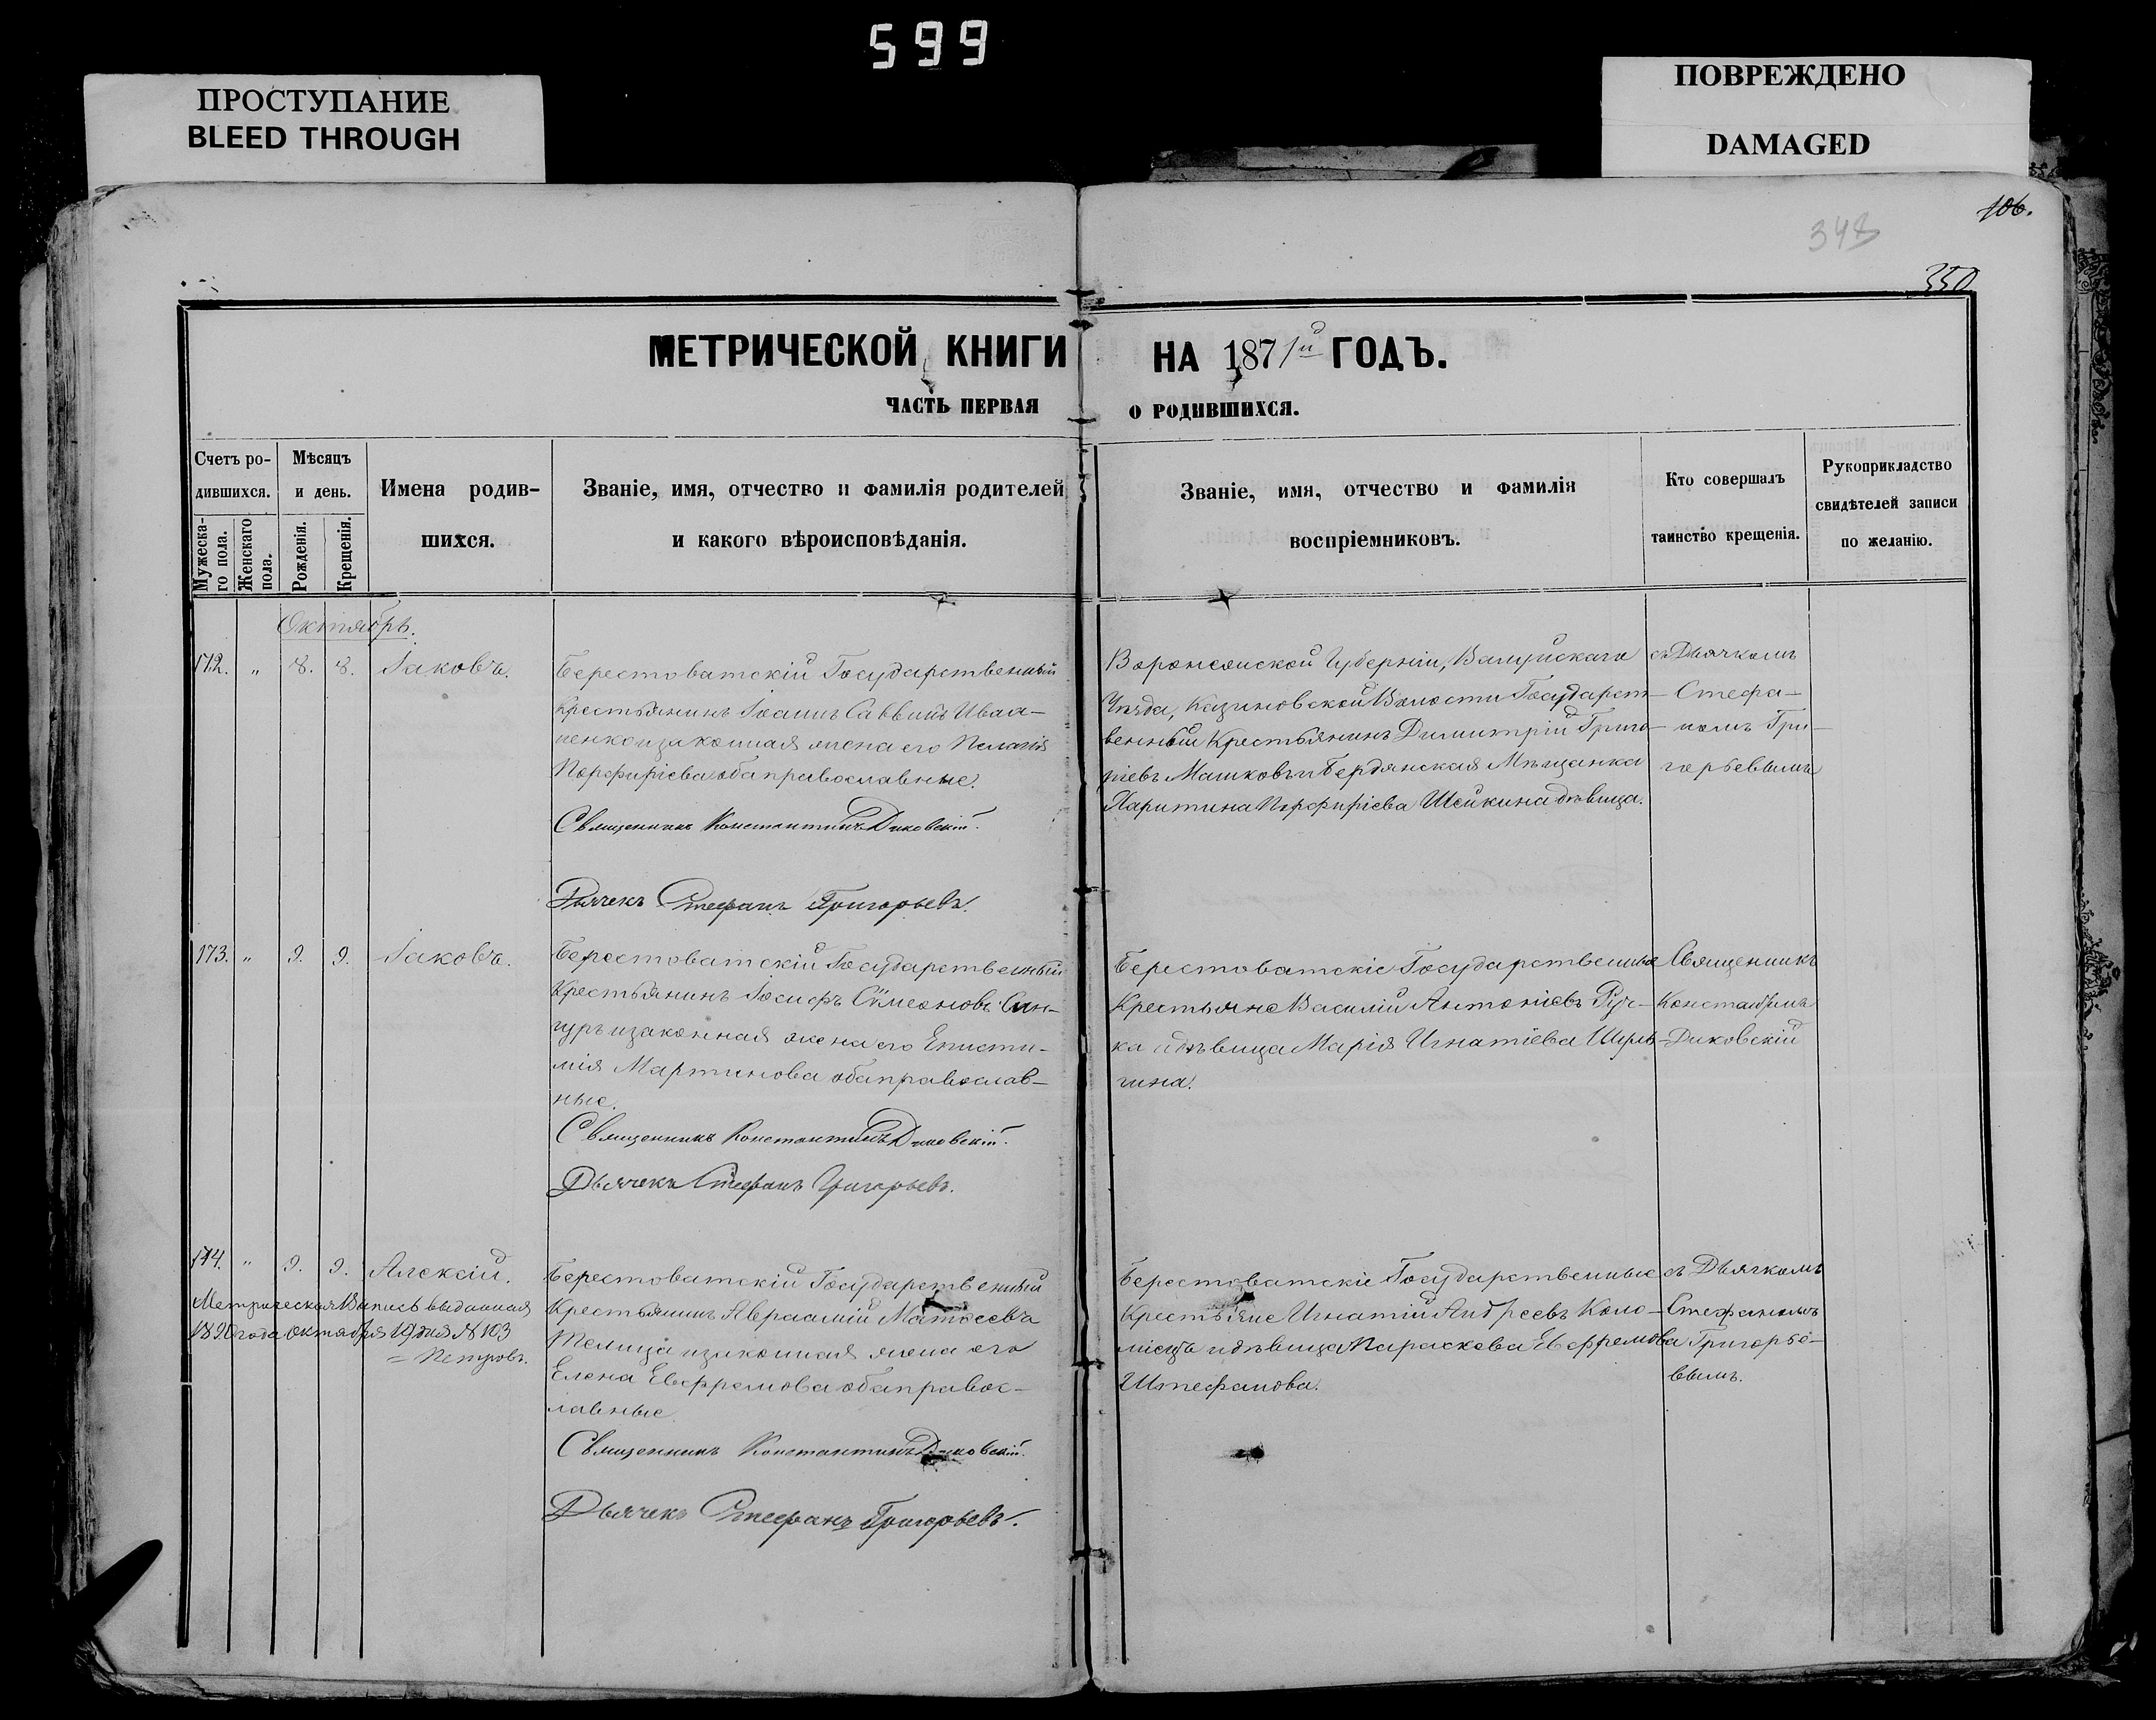 599
ПРОСТУПАНИЕ
BLEED THROUGH
ПОВРЕЖДЕНО
DAMAGED
106.
348
350
МЕТРИЧЕСКОЙ КНИГИ НА 1871й ГОДЪ.
ЧАСТЬ ПЕРВАЯ О РОДИВШИХСЯ.
Счетъ ро-
дившихся.
Мужеска-
го пола.
Женскаго
пола.
Мѣсяцъ
и день.
Рожденія.
Крещенія.
Имена родив-
шихся.
Званіе, имя, отчество и фамилія родителей
и какого вѣроисповѣданія.
Званіе, имя, отчество и фамилія
воспріемниковъ.
Кто совершалъ
таинство крещенія.
Рукоприкладство
свидѣтелей записи
по желанію.
Октябрь.
172. " 8. 8. Іаковъ.
Берестоватскій Государственный
Крестьянинъ Іоаннъ Саввинъ Ива-
ненко и законная жена его Пелагія
Порфиріева оба православные.
Священникъ Константинъ Диковскій.
Дьячекъ Стефанъ Григорьевъ.
Воронежской Губерніи, Валуйскаго
Уѣзда, Казиновской Волости Государст-
венный Крестьянинъ Димитрій Григо-
ріевъ Машковъ и Бердянская Мѣщанка
Харитина Порфиріева Шейкина дѣвица.
съ Дьячкомъ
Стефа-
номъ Гри-
горьевымъ
173. " 9. 9. Іаковъ.
Берестоватскій Государственный
Крестьянинъ Іосифъ Сѵмеоновъ Сын-
гуръ и законная жена его Еписти-
мія Мартинова оба православ-
ные.
Священникъ Константинъ Диковскій.
Дьячекъ Стефанъ Григорьевъ.
Берестоватскіе Государственные
Крестьяне Василій Антоніевъ Руч-
ка и дѣвица Марія Игнатіева
гина.
Священникъ
Константинъ
Диковскій
174. " 9. 9. Алексій.
Метрическая Выпись выданная
1890 года Октября 19 дня № 103
= Петровъ.
Берестоватскій Государственный
Крестьянинъ Авраамій Матѳеевъ
Телица и законная жена его
Елена Евфремова оба правос-
лавные.
Священникъ Константинъ Диковскій.
Дьячекъ Стефанъ Григорьевъ.
Берестоватскіе Государственные
Крестьяне Игнатій Андреевъ Коло-
міецъ и дѣвица Параскева Евфремова
Штефанова.
съ Дьячкомъ
Стефаномъ
Григорье-
вымъ.